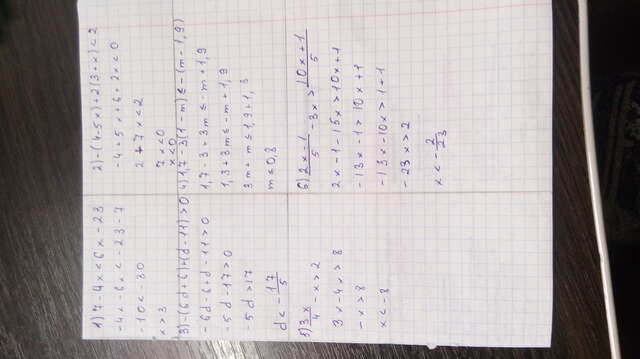 1) 7 - 4x < 6x - 23
-4x - 6x < -23 - 7
-10 < -30
x > 3
2) -(4-5x)+2(3+x) < 2
-4 + 5x + 6 + 2x < 0
2 + 7x < 2
7x < 0
x < 0
3) -(6d+6)+(d-11) > 0
-6d - 6 + d - 11 > 0
-5d - 17 > 0
-5d > 17
d < - 17/5
4) 1,7 - 3(1-m) ≤ -(m-1,9)
1,7 - 3 + 3m ≤ -m + 1,9
1,3 + 3m ≤ -m + 1,9
3m + m ≤ 1,9 + 1,3
m ≤ 0,8
5) 3x/4 - x > 2
3x - 4x > 8
-x > 8
x < -8
6) 2x-1/5 - 3x > 10x+1/5
2x - 1 - 15x > 10x + 1
-13x - 1 > 10x + 1
-13x - 10x > 1 + 1
-23x > 2
x < - 2/23